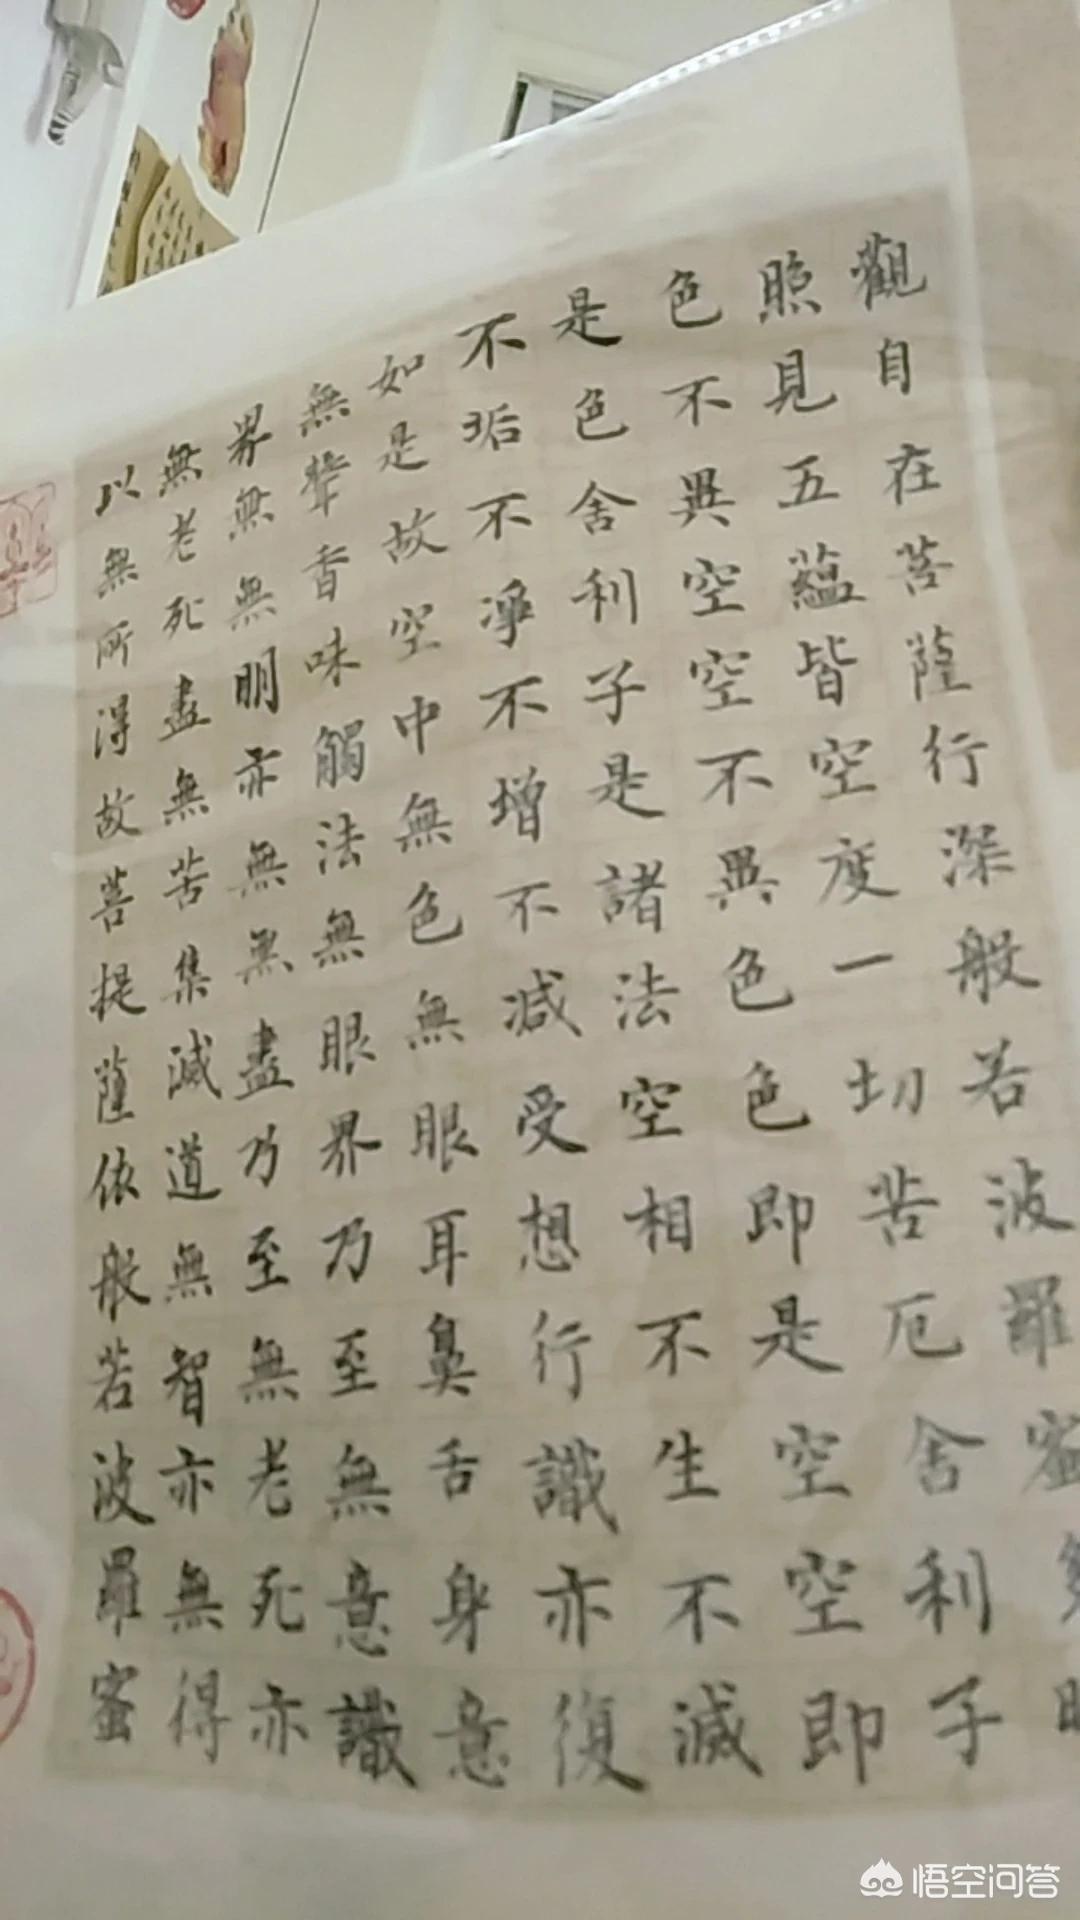 觀自在菩薩行深般若波羅蜜
照見五蘊皆空度一切苦厄舍利子
色不異空空不異色色即是空空即
是色舍利子是諸法空相不生不滅
不垢不淨不增不減受想行識亦復
如是故空中無色無眼耳鼻舌身意
無聲香味觸法無眼界乃至無意識
界無無明亦無無盡乃至無老死亦
無老死盡無苦集滅道無智亦無得
以無所得故菩提薩依般若波羅蜜
悟空问答